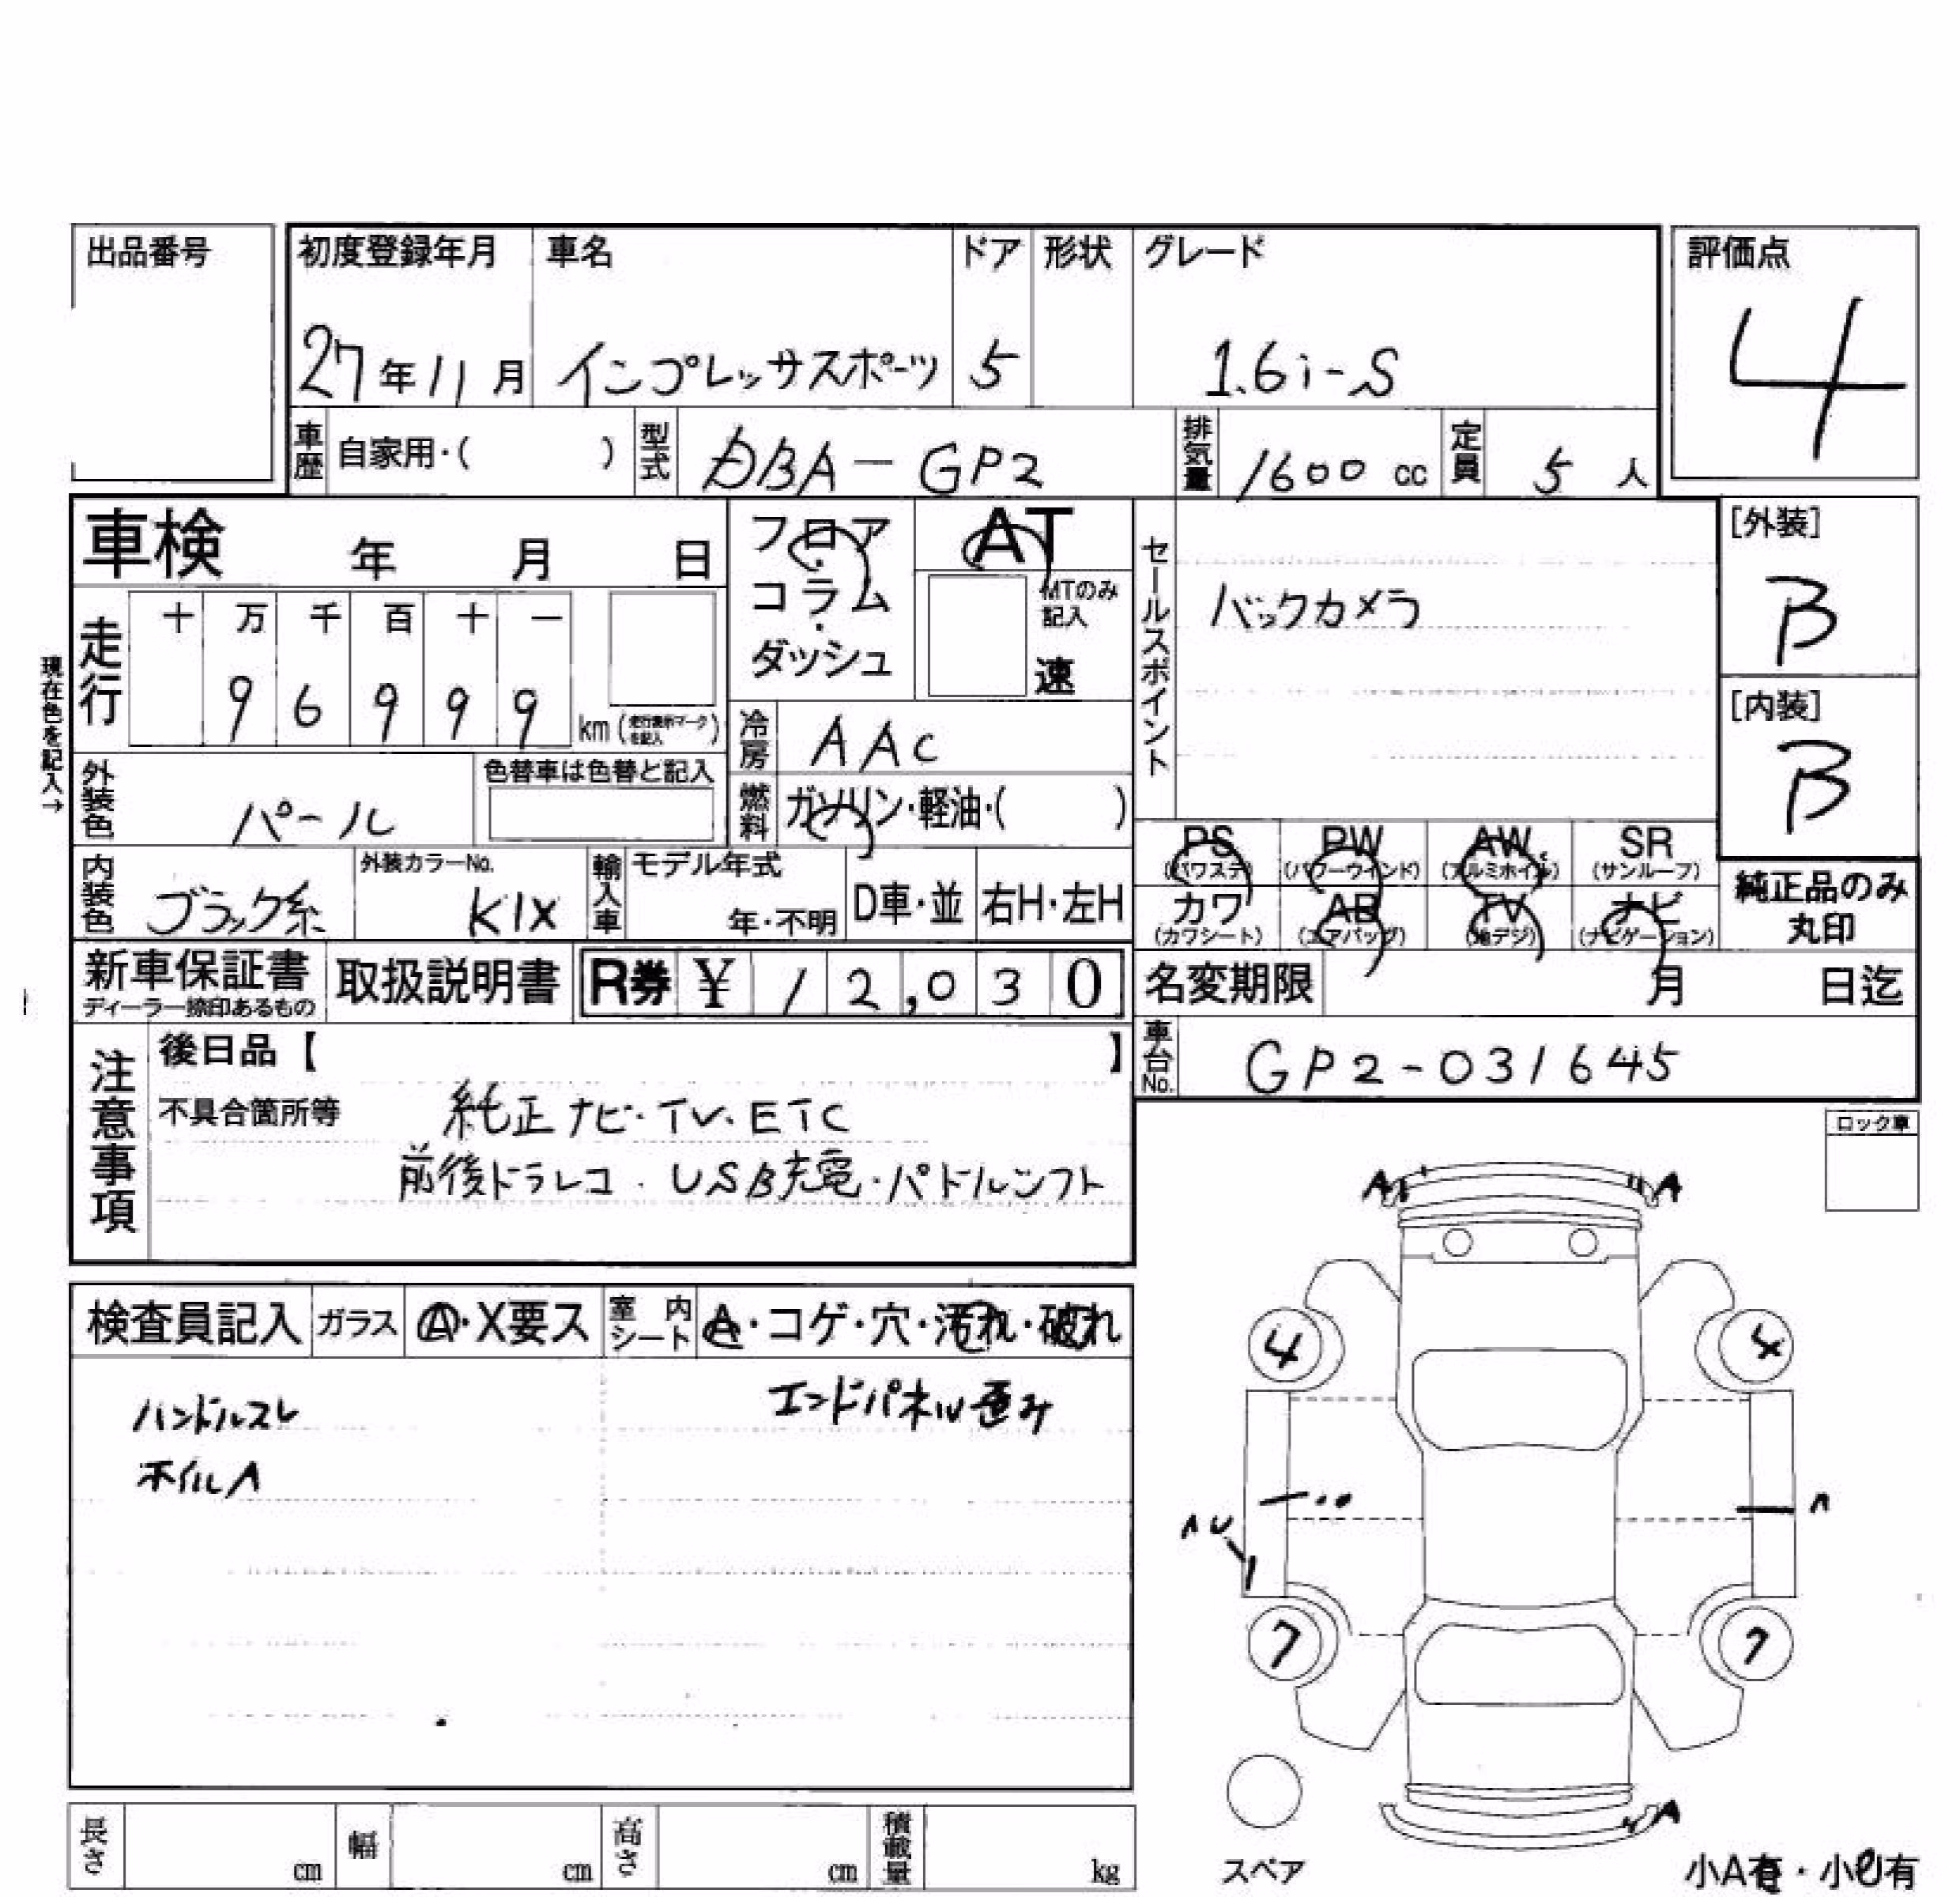 出品番号
初度登録年月 車名 ドア 形状 グレード 評価点
27年11月 インプレッサスポーツ 5 1.6i-S 4
車歴 自家用・( ) 型式 DBA-GP2 排気量 1600 cc 定員 5 人
車検 年 月 日
フロア・コラム・ダッシュ
AT
MTのみ記入
速
セールスポイント
バックカメラ
[外装]
B
[内装]
B
現在色を記入→
走行 十 万 千 百 十 一
9 6 9 9 9 km (走行表示マークを記入)
冷房 AAC
燃料 ガソリン・軽油・( )
外装色 パール 色替車は色替と記入
PS (パワステ) PW (パワーウィンド) AW (アルミホイル) SR (サンルーフ)
カワ (カワシート) AB (エアバッグ) TV (地デジ) ナビ (ナビゲーション)
純正品のみ丸印
内装色 ブラック系 外装カラーNo. K1X 輸入車 モデル年式 年・不明 D車・並 右H・左H
新車保証書 ディーラー捺印あるもの 取扱説明書 R券 ¥ 12,030 名変期限 月 日迄
車台No. GP2-031645
注意事項
後日品【 】
不具合箇所等 純正ナビ・TV・ETC
前後ドラレコ・USB充電・パドルシフト
ロック車
A A
検査員記入 ガラス A・X要ス 室内シート A・コゲ・穴・汚れ・破れ
ハンドルスレ エンドパネル歪み
ホイルA
4 4
AU A
7 7
A
スペア
小A有・小U有
長さ cm 幅 cm 高さ cm 積載量 kg